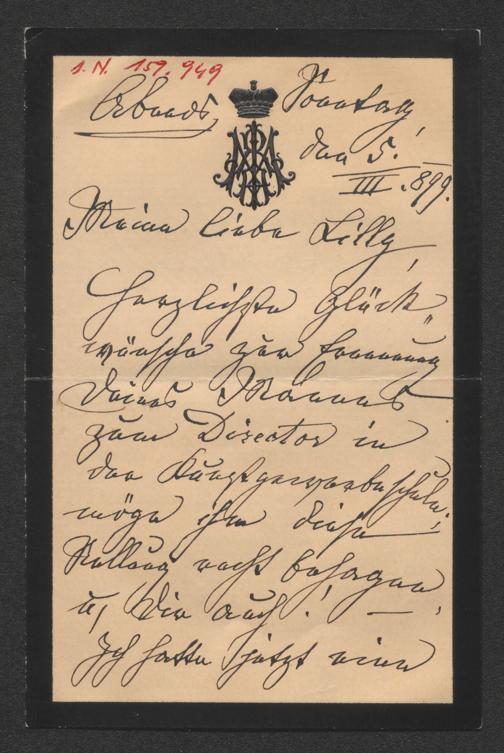 I. N. 159.949
Abends, Sonntag,
den 5.
III. 899.
Meine liebe Lilly,
Herzlichste Glück„
wünsche zur Ernennung
Deines Mannes
zum Director in
der Kunstgewerbeschule;
möge ihm diese
Stellung recht behagen
u, Dir auch! —
Ich hatte jetzt eine